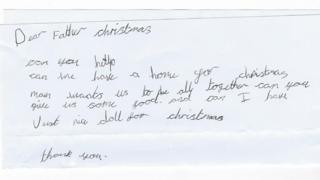 Dear Father christmas
can you help
can we have a home for christmas
mam wants us to be all together can you
give us some food. and can I have
Just a doll for christmas
thank you.